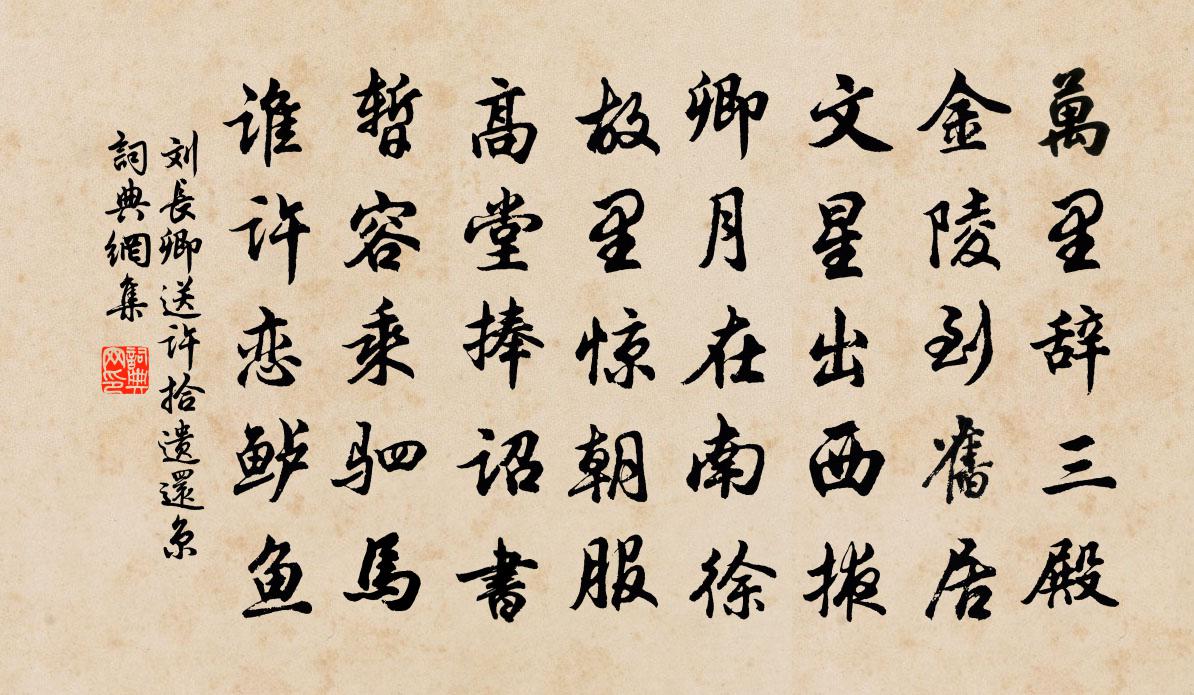 萬里辞三殿
金陵到舊居
文星出西掖
卿月在南徐
故里惊朝服
高堂捧诏書
暫容乘驷馬
谁许恋鲈鱼
刘長卿送许拾遗還京
詞典網集
詞典网印